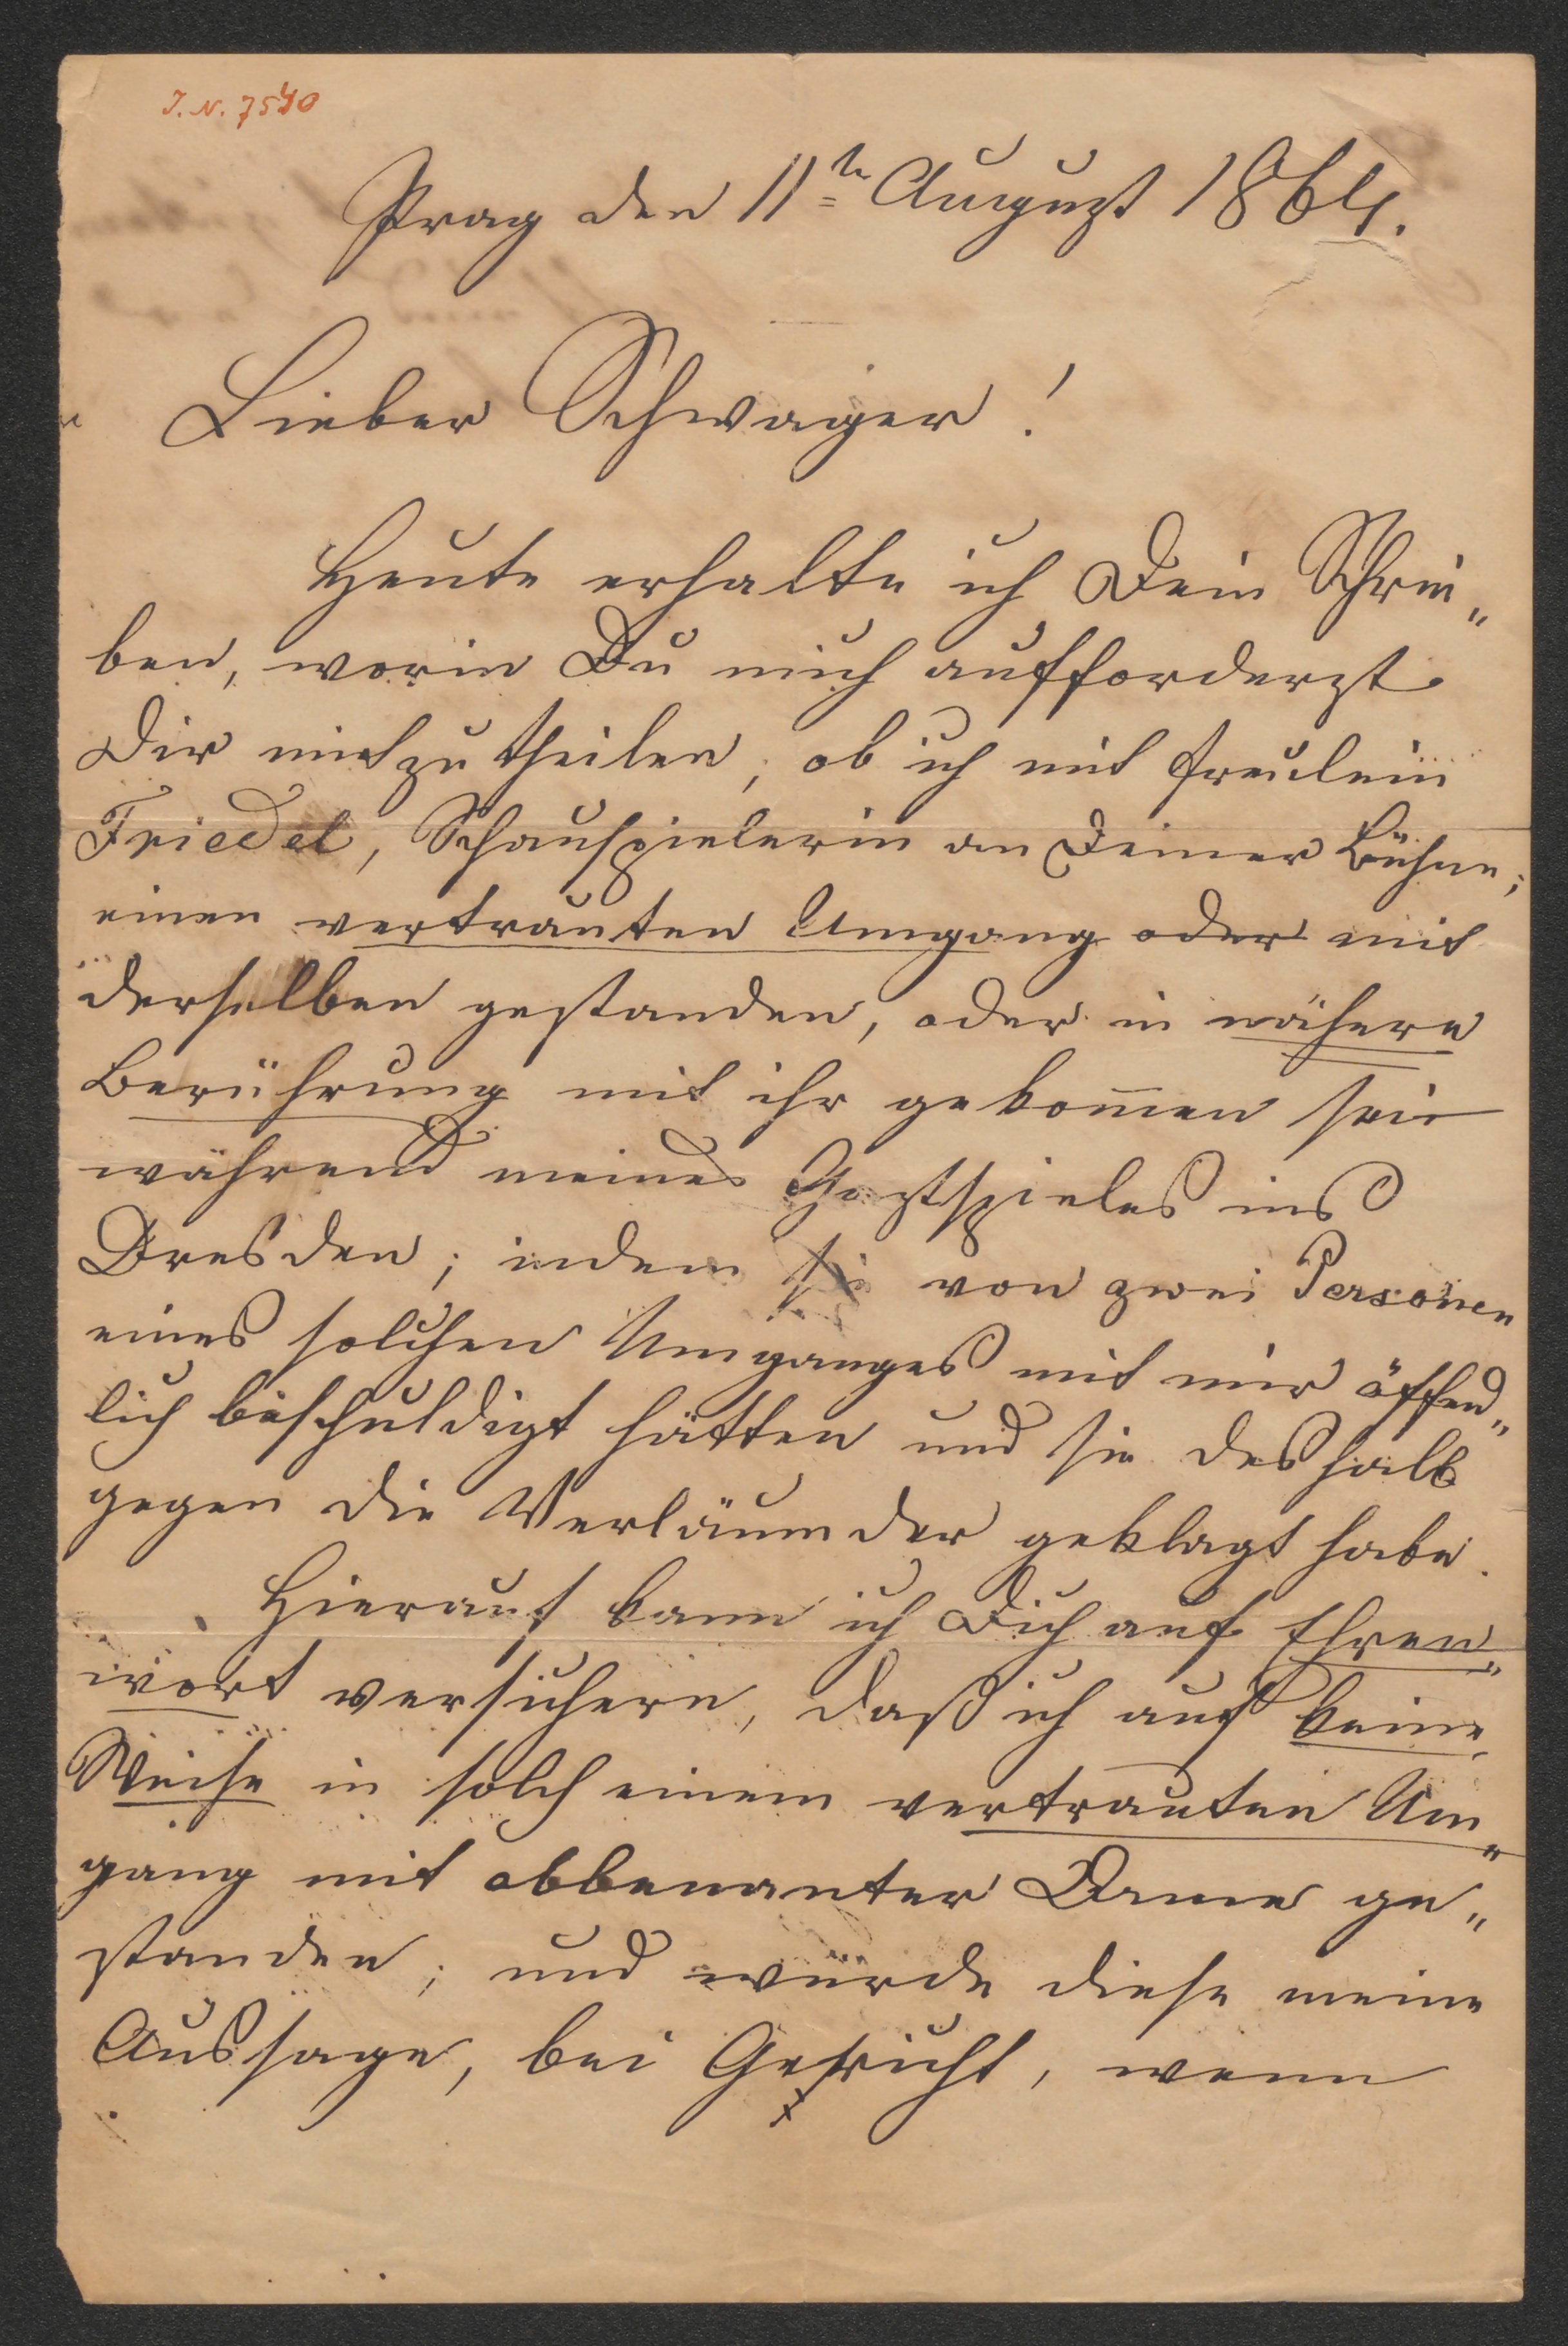 J. N. 7540
Prag den 11te August 1864.
Lieber Schwager!
Heute erhalte ich Dein Schrei„
ben, worin Du mich aufforderst
Dir mitzutheilen, ob ich mit Freulein
Friedel, Schauspielerin an Deiner Bühne;
einen vertrauten Umgang oder mit
derselben gestanden, oder in nähere
Berührung mit ihr gekom̅en sei
während meines Gastspieles in
Dresden; indem sie von zwei Personen
eines solchen Umganges mit mir öffend„
lich beschuldigt hätten und sie deshalb
gegen die Verläumder geklagt habe.
Hierauf kann ich Dich auf Ehren„
wort versichern, daß ich auf keine
Weise in solch einem vertrauten Um„
gang mit obbenanter Dame ge„
standen; und würde diese meine
Aussage, bei Gericht, wenn